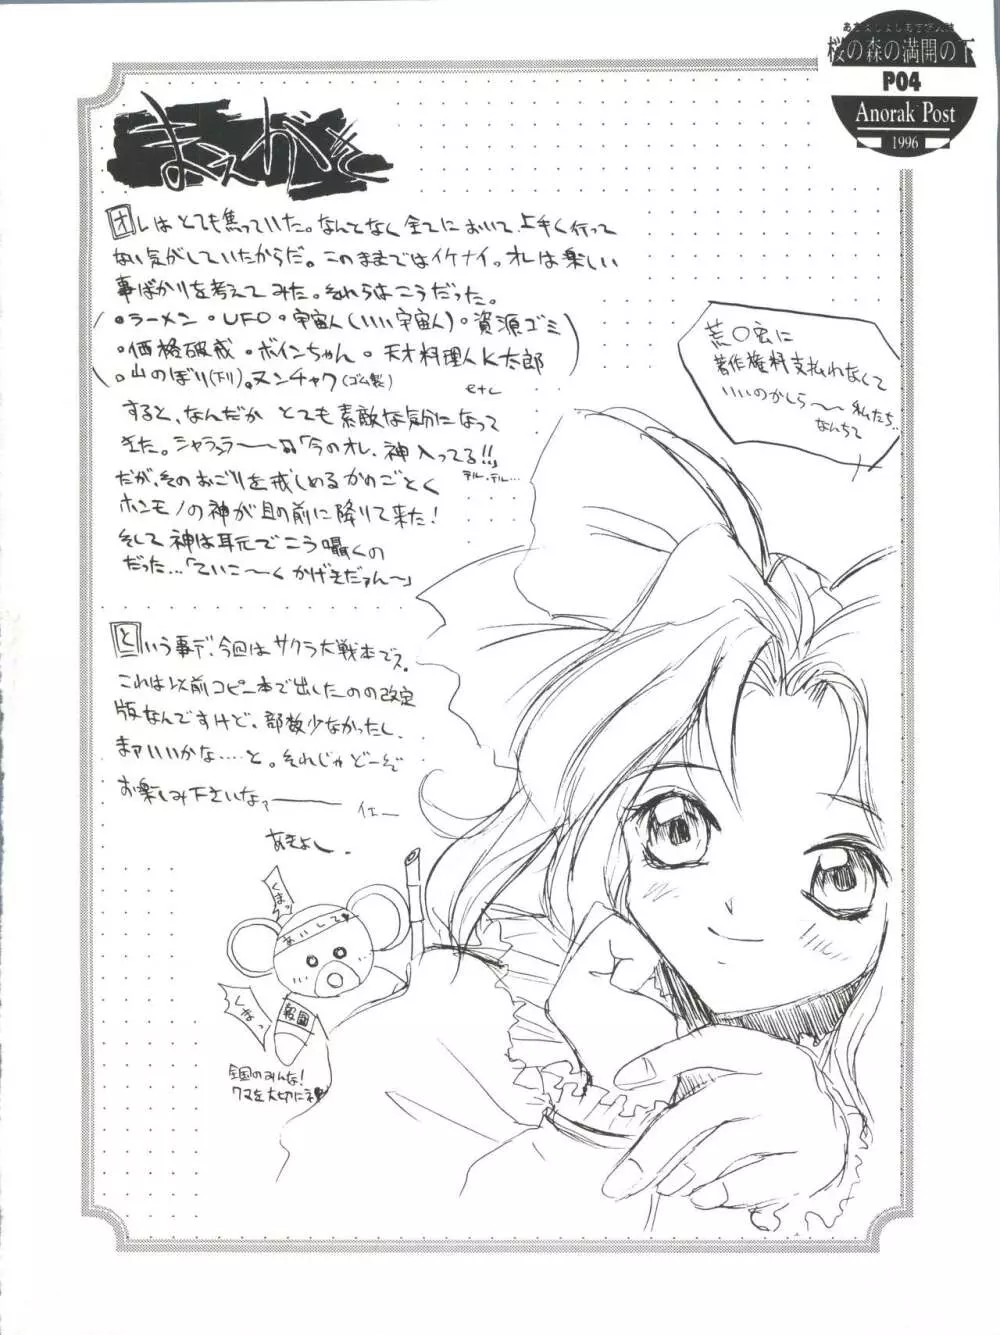 桜の森の満開の下
P04
Anorak Post
1996
まえがき
オレはとても焦っていた。なんとなく全てにおいて上手く行って
ない気がしていたからだ。このままではイケナイっ。オレは楽しい
事ばかりを考えてみた。それらはこうだった。
・ラーメン・UFO・宇宙人(いい宇宙人)・資源ゴミ
・価格破戒・ボインちゃん・天才料理人K太郎
・山のぼり(下り)。ヌンチャク(ゴム製)
etc
すると、なんだか とても素敵な気分になって
きた。シャララ〜〜♫「今のオレ、神入ってる!!」
テル・テル…
だが、そのおごりを戒しめるかのごとく
ホンモノの神が目の前に降りて来た!
そして神は耳元でこう囁くの
だった…「ていこ〜〜く かげきだァん〜」
荒〇宏に
著作権料支払わなくて
いいのかしら〜〜私たち..
なんちて
という事デ、今回はサクラ大戦本でス。
これは以前コピー本で出したのの改定
版なんですけど、部数少なかったし、
まァいいかな‥‥と。それじゃどーぞ
お楽しみ下さいなァ———
イェー
あきよし.
くまっ
あいして♥
くなっ
報国
全国のみんな!
クマを大切にネ♥